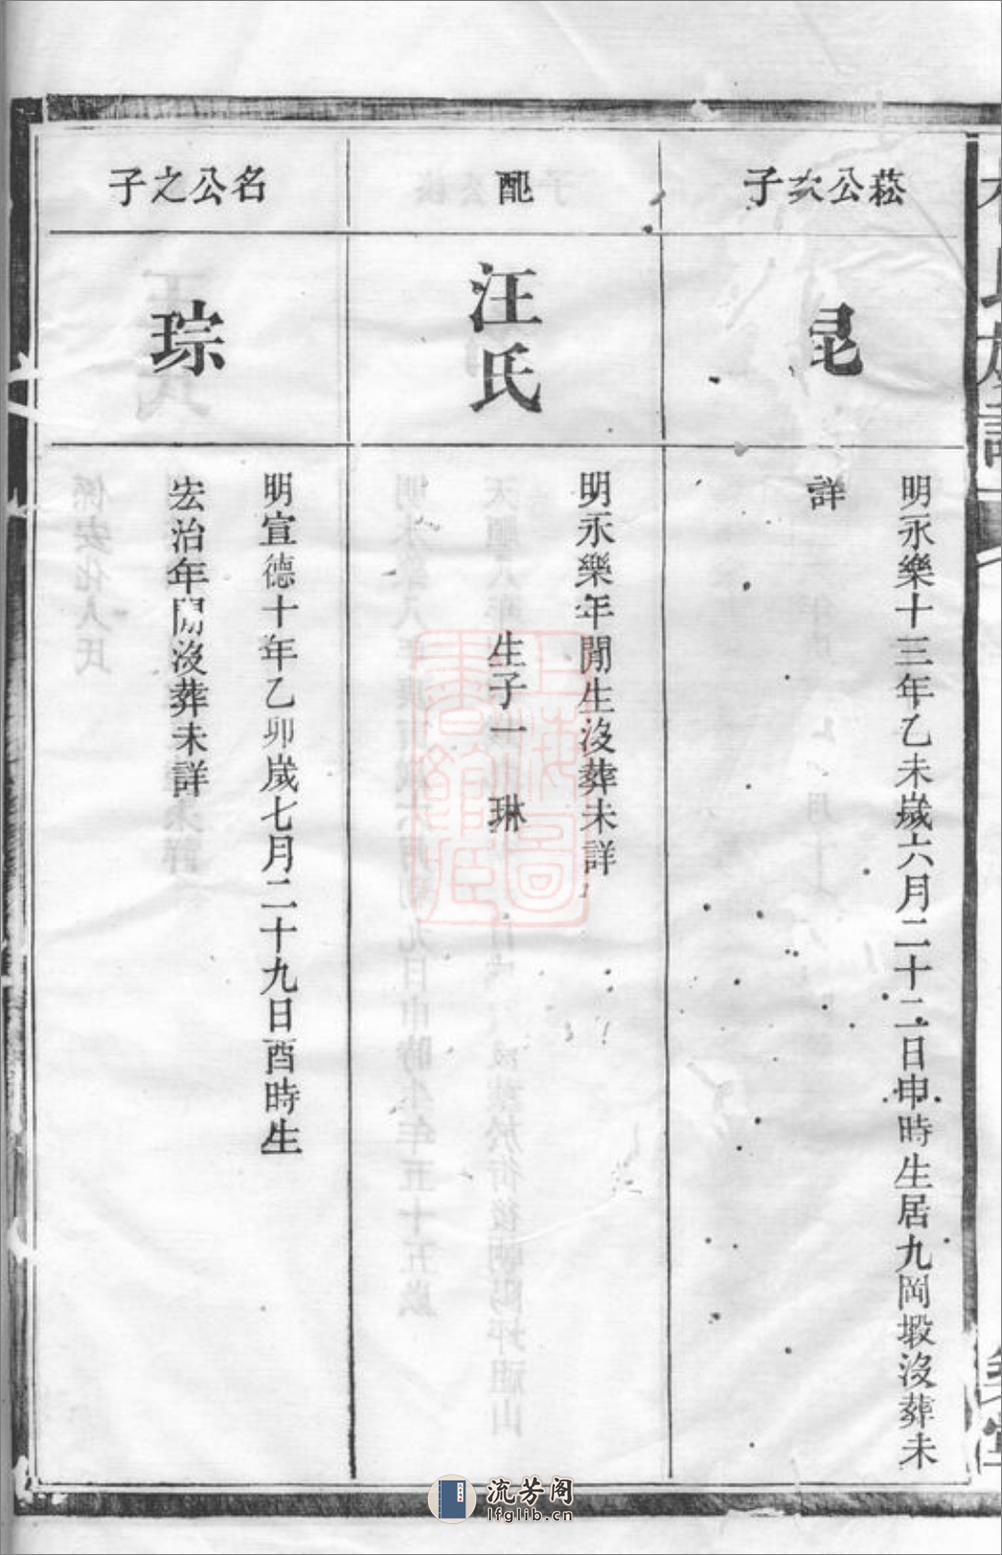 菘公次子
昆
明永樂十三年乙未歲六月二十二日申時生居九岡塅沒葬未
詳
配
汪氏
明永樂年閒生沒葬未詳
生子一 琳
名公之子
琮
明宣德十年乙卯歲七月二十九日酉時生
宏治年閒沒葬未詳
上海圖書館藏
流芳阁
lfglib.cn